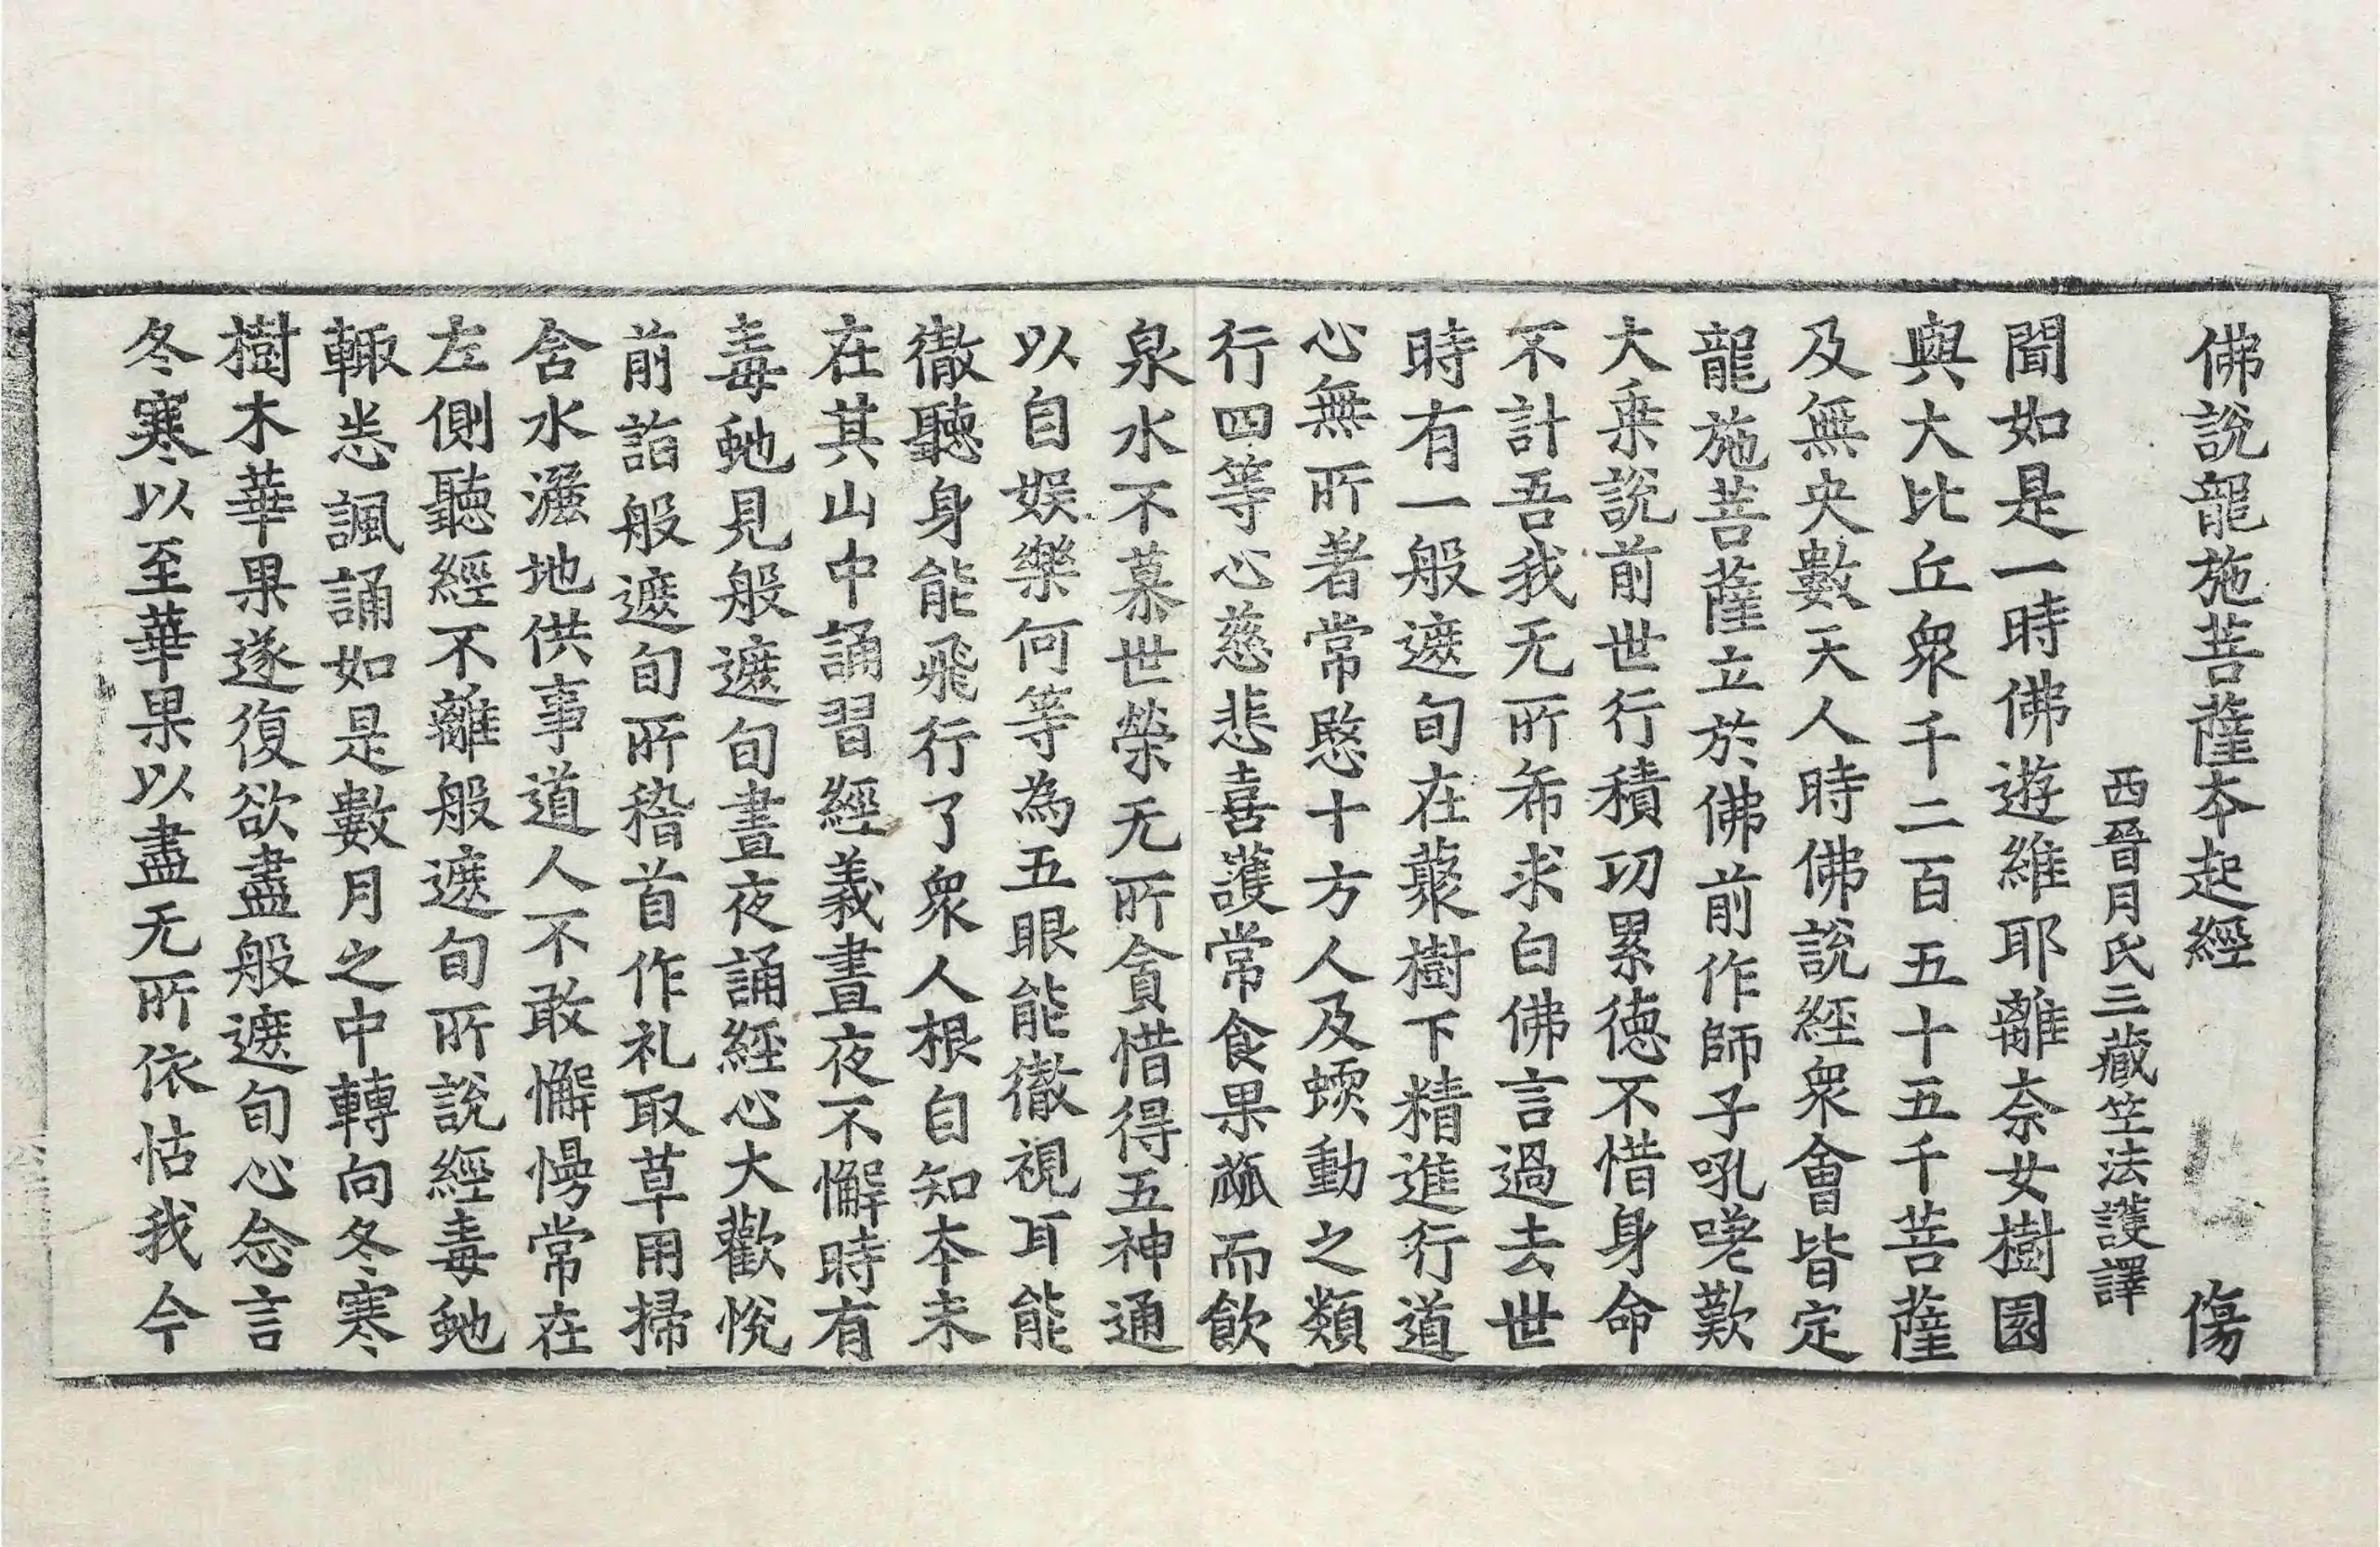 佛說龍施菩薩本起經 傷
西晉月氏三藏竺法護譯
聞如是一時佛遊維耶離柰女樹園
與大比丘眾千二百五十五千菩薩
及無央數天人時佛說經眾會皆定
龍施菩薩立於佛前作師子吼嗟歎
大乗說前世行積功累德不惜身命
不計吾我无所希求白佛言過去世
時有一般遮旬在藂樹下精進行道
心無所著常愍十方人及蠕動之類
行四等心慈悲喜護常食果蓏而飲
泉水不慕世榮无所貪惜得五神通
以自娛樂何等為五眼能徹視耳能
徹聽身能飛行了眾人根自知本末
在其山中誦習經義晝夜不懈時有
毒虵見般遮旬晝夜誦經心大歡悅
前詣般遮旬所稽首作礼取草用掃
含水灑地供事道人不敢懈慢常在
左側聽經不離般遮旬所說經毒虵
輙悉諷誦如是數月之中轉向冬寒
樹木華果遂復欲盡般遮旬心念言
冬寒以至華果以盡无所依怙我今